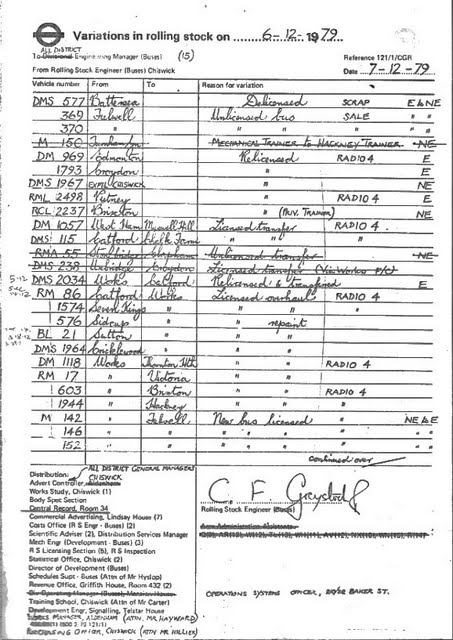 Variations in rolling stock on 6-12-1979
ALL DISTRICT
To Divisional Engineering Manager (Buses) (15)
Reference 121/1/CGR
From Rolling Stock Engineer (Buses) Chiswick
Date 7-12-79
Vehicle number From To Reason for variation
DMS 577 Battersea Delicensed SCRAP E & NE
369 Fulwell Unlicensed bus SALE " "
370 " " " " "
M 150 Turnham Grn MECHANICAL TRAINER to HACKNEY TRAINER NE
DM 969 Edmonton Relicensed RADIO 4 E
1793 Croydon " E
DMS 1967 CHISWICK " NE
RML 2498 Putney " RADIO 4 E
RCL 2237 Brixton " TRAINER) NE
DM 1057 West Ham Muswell Hill Licensed transfer RADIO 4
DMS 115 Catford Chalk Farm " "
RMA 55 Clapham Unlicensed transfer NE
DMS 238 Uxbridge Croydon Licensed transfer
5-12 DMS 2034 Works Catford Relicensed & transferred E
RM 86 Catford Works Licensed overhaul RADIO 4
1574 Seven Kings " " "
576 Sidcup " " repaint
BL 21 Sutton " " "
DMS 1964 Cricklewood " " "
DM 1118 Works Thornton Hth " " RADIO 4
RM 17 " Victoria " "
603 " Brixton " " RADIO 4
1944 " Hackney " " "
M 142 " Fulwell New bus licensed NE & E
146 " " " " " " "
152 " " " " " " "
continued over
Distribution: ALL DISTRICT GENERAL MANAGERS
CHISWICK
Advert Controller, Aldenham
Works Study, Chiswick (1)
Body Spec Section
Central Record, Room 34
C. F. Greystock
Rolling Stock Engineer (Buses)
Commercial Advertising, Lindsay House (7)
Costs Office (R S Engr - Buses) (2)
Scientific Adviser (2), Distribution Services Manager
Mech Engr (Development - Buses) (3)
R S Licensing Section (5), R S Inspection
Statistical Office, Chiswick (2)
Director of Development (Buses)
Schedules Supt - Buses (Attn of Mr Hyslop)
Revenue Office, Griffith House, Room 432 (2)
Training School, Chiswick (Attn of Mr Carter)
Development Engr, Signalling, Telstar House
OPERATIONS SYSTEMS OFFICER, BAKER ST.
MANAGER, ALDENHAM (ATTN. MR HAYWARD)
OFFICER, CHISWICK (ATTN MR HILLIER)